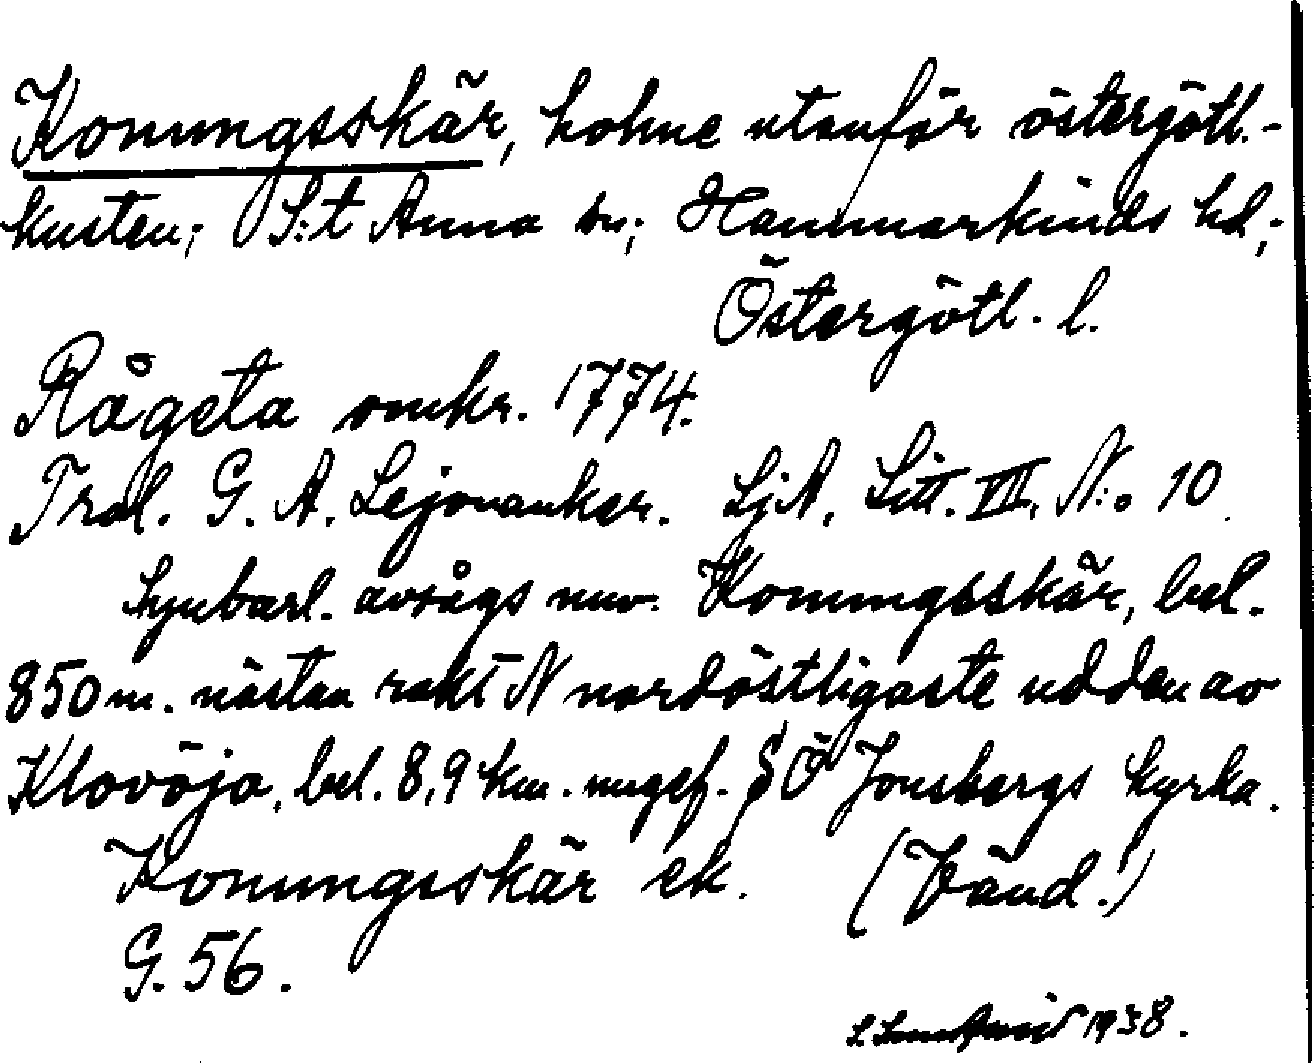 Konungsskär, holme utanför östergötl.-
kusten; S:t Anna sn; Hammarkinds hd;
Östergötl. l.
Rågeta omkr. 1774.
Trol. G. A. Lejonanker. LjA, Litt. VII, N:o 10.
Synbarl. avsågs nuv. Konungsskär, bel.
850 m. nästan rakt N nordöstligaste udden av
Klovöja, bel. 8,9 km. ungef. S Ö Jonsbergs kyrka.
Konungsskär ek. (Vänd!)
G. 56.
1938.